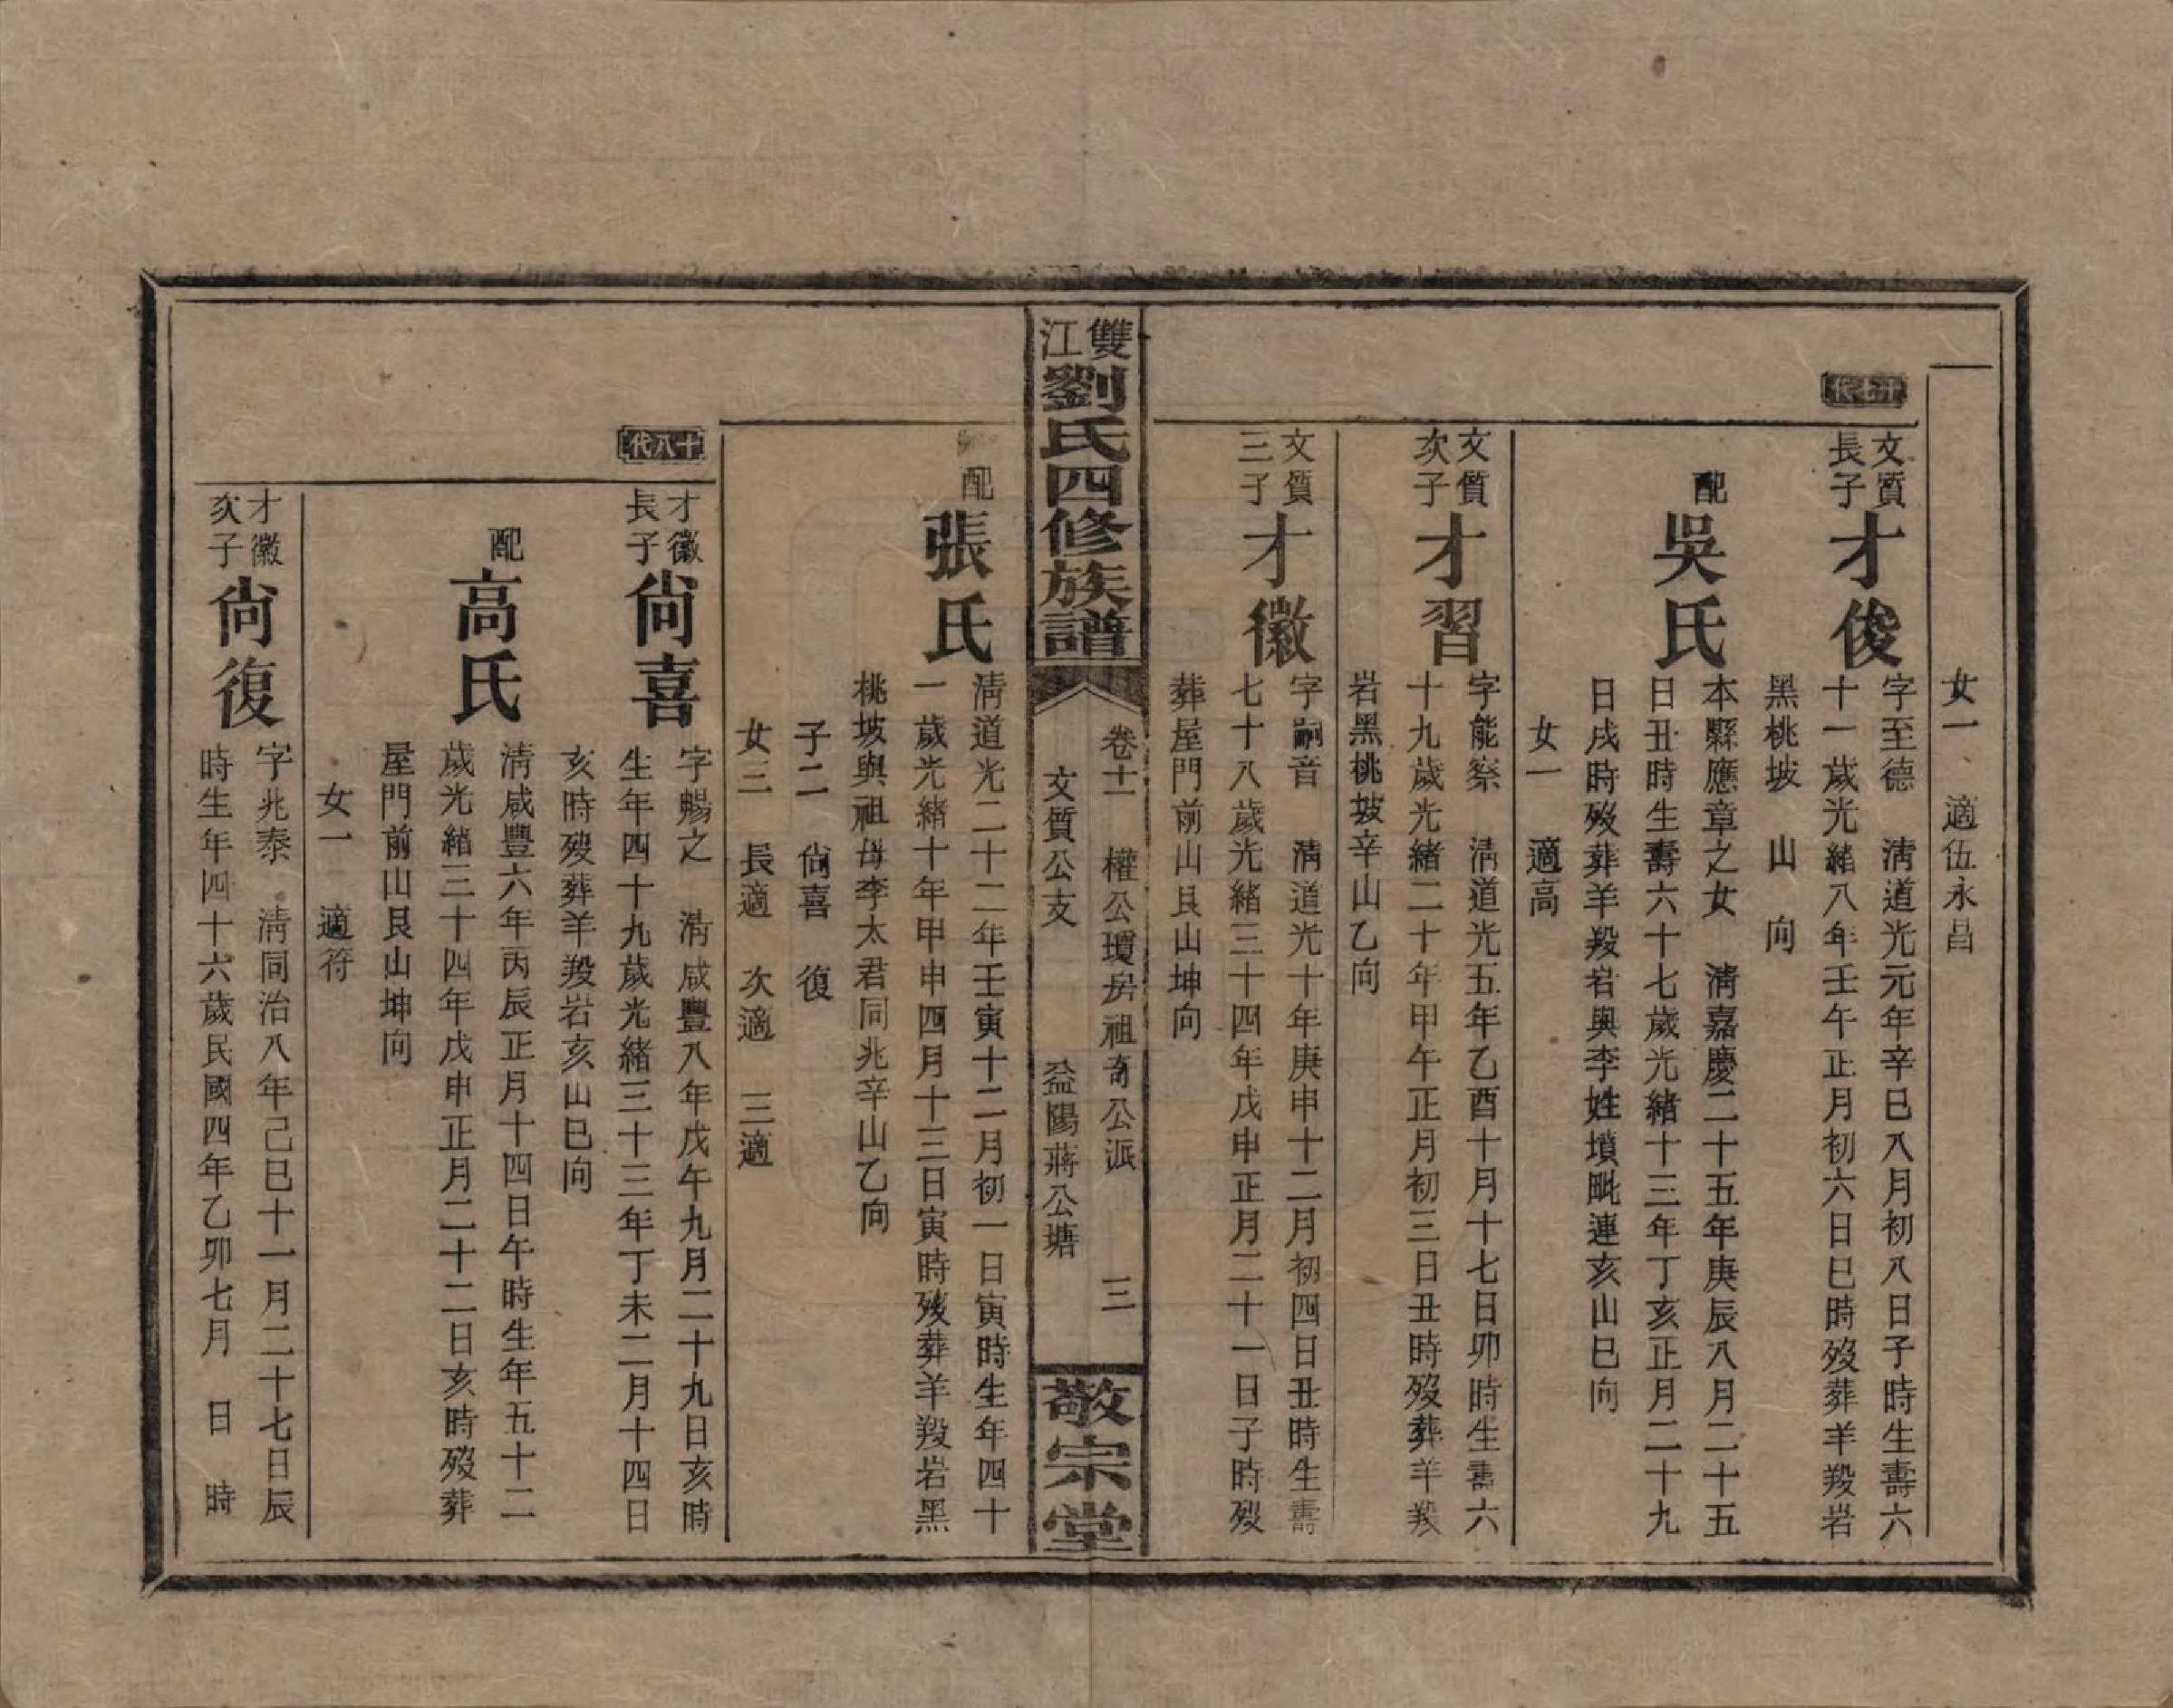 女一 適伍永昌
十七代
文質
長子
才俊
字至德 清道光元年辛巳八月初八日子時生壽六
十一歲光緒八年壬午正月初六日巳時歿葬羊羖岩
黑桃坡 山 向
配
吳氏
本縣應章之女 清嘉慶二十五年庚辰八月二十五
日丑時生壽六十七歲光緒十三年丁亥正月二十九
日戌時歿葬羊羖岩與李姓墳毗連亥山巳向
女一 適高
文質
次子
才習
字能察 清道光五年乙酉十月十七日卯時生壽六
十九歲光緒二十年甲午正月初三日丑時歿葬羊羖
岩黑桃坡辛山乙向
文質
三子
才徽
字嗣音 清道光十年庚申十二月初四日丑時生壽
七十八歲光緒三十四年戊申正月二十一日子時歿
葬屋門前山艮山坤向
雙江
劉氏四修族譜
卷十一 權公瓊房祖奇公派 三
文質公支 益陽蔣公塘
敬宗堂
配
張氏
清道光二十二年壬寅十二月初一日寅時生年四十
一歲光緒十年甲申四月十三日寅時歿葬羊羖岩黑
桃坡與祖母李太君同兆辛山乙向
子二 尙喜 復
女三 長適 次適 三適
十八代
才徽
長子
尙喜
字暢之 清咸豐八年戊午九月二十九日亥時
生年四十九歲光緒三十三年丁未二月十四日
亥時歿葬羊羖岩亥山巳向
配
高氏
清咸豐六年丙辰正月十四日午時生年五十二
歲光緒三十四年戊申正月二十二日亥時歿葬
屋門前山艮山坤向
女一 適符
才徽
次子
尙復
字兆泰 清同治八年己巳十一月二十七日辰
時生年四十六歲民國四年乙卯七月 日 時